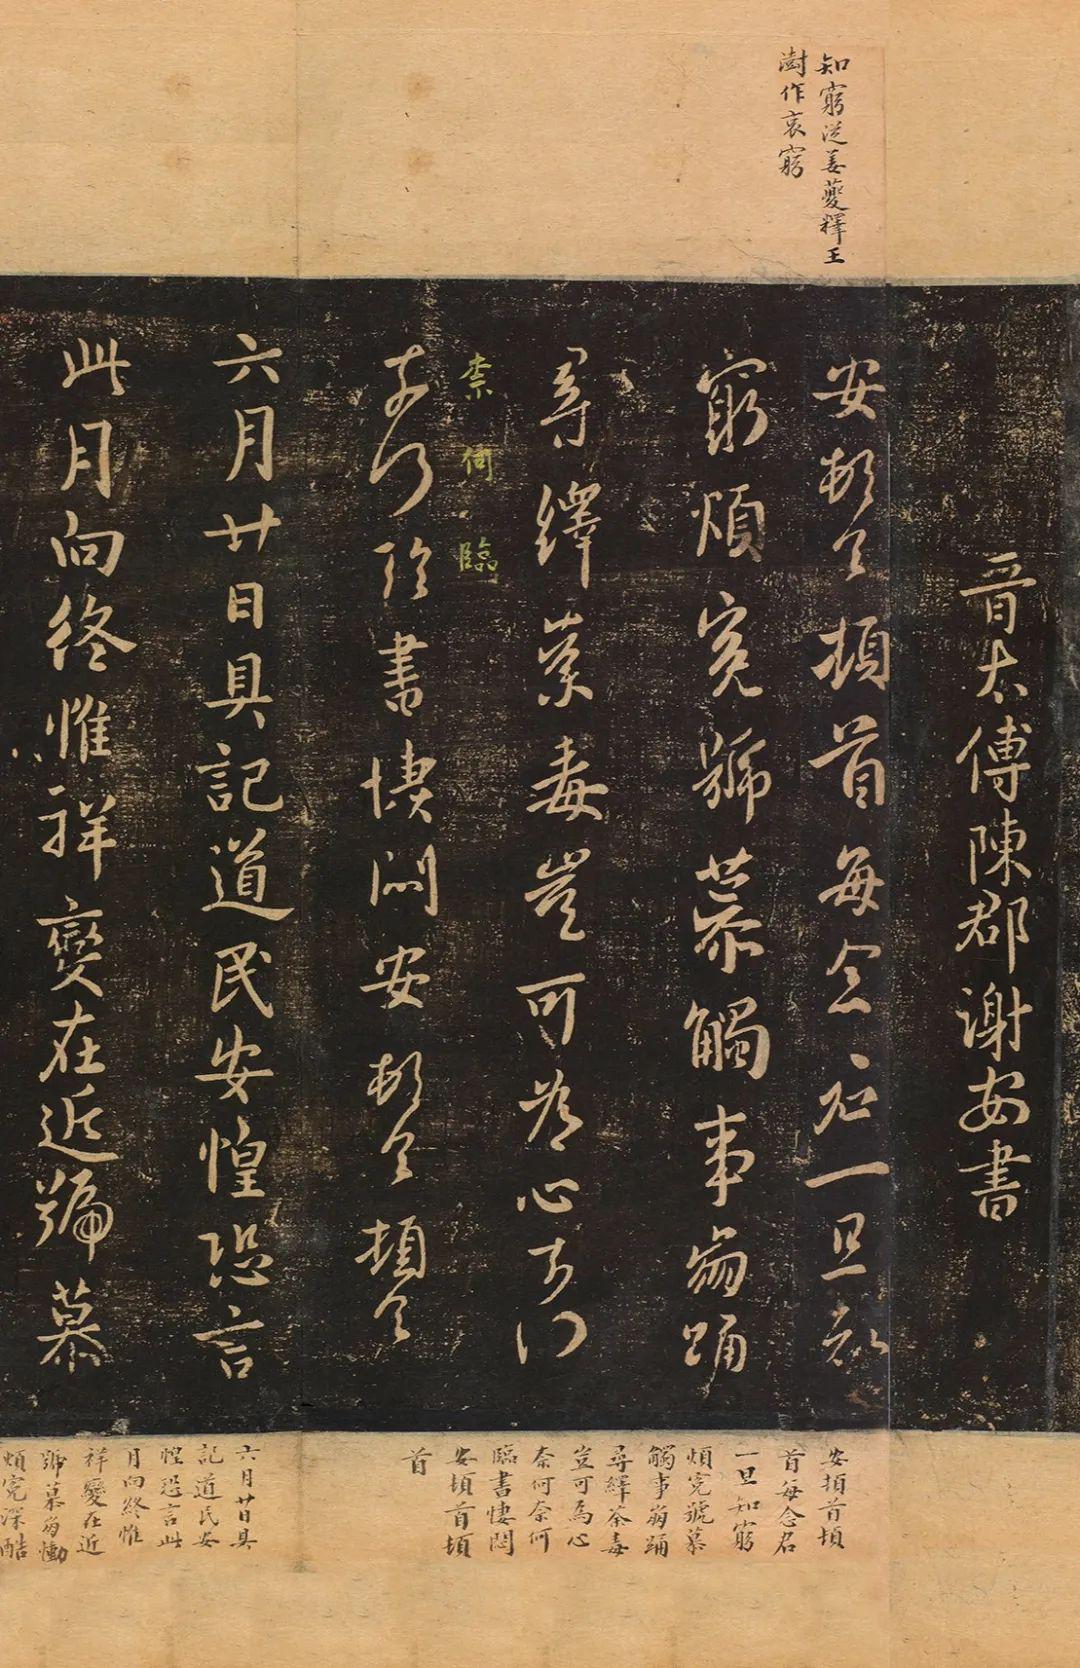 知窮從姜夔釋王
澍作哀窮
晉太傅陳郡謝安書
安頓首頓首每念君一旦知
窮煩冤號慕觸事崩踊
尋繹荼毒豈可為心奈何
柰何臨
奈何臨書悽悶安頓首頓首
六月廿日具記道民安惶恐言
此月向終惟祥變在近號慕
安頓首頓
首每念君
一旦知窮
煩冤號慕
觸事崩踊
尋繹荼毒
豈可為心
奈何奈何
臨書悽悶
安頓首頓
首
六月廿日具
記道民安
惶恐言此
月向終惟
祥變在近
號慕崩慟
煩冤深酷